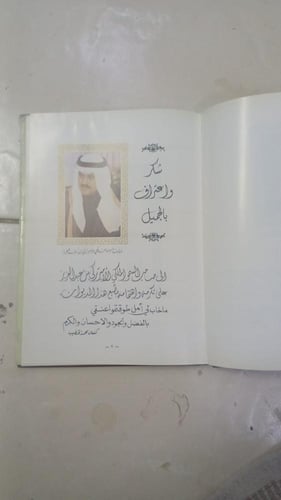 شكر
واعتراف
بالجميل
الى صاحب السمو الملكي الأمير تركي بن عبد العزيز
على تكرمه واهتمامه بطبع هذا الديوان
ما خاب في أملي طوقتموا عنقي
بالفضل والجود والاحسان والكرم
- ٩ -